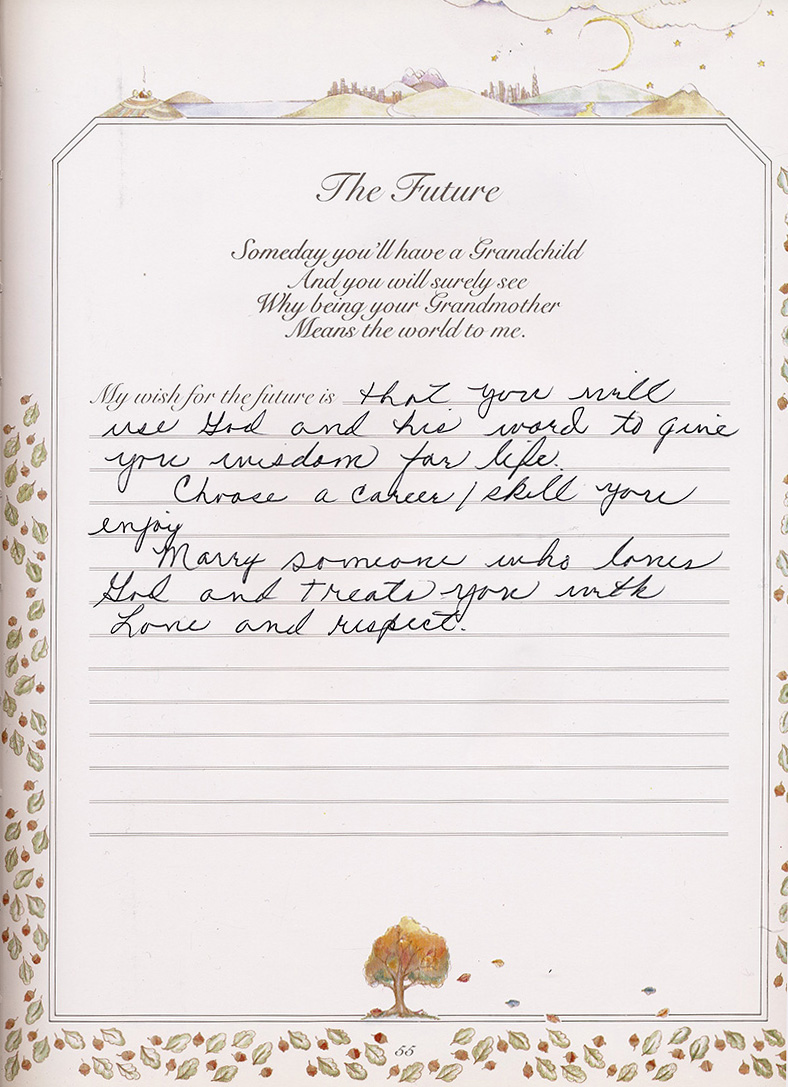 The Future
Someday you'll have a Grandchild
And you will surely see
Why being your Grandmother
Means the world to me.
My wish for the future is that you will
use God and his word to give
you wisdom for life.
Choose a career/skill you
enjoy
Marry someone who loves
God and treats you with
Love and respect.
55